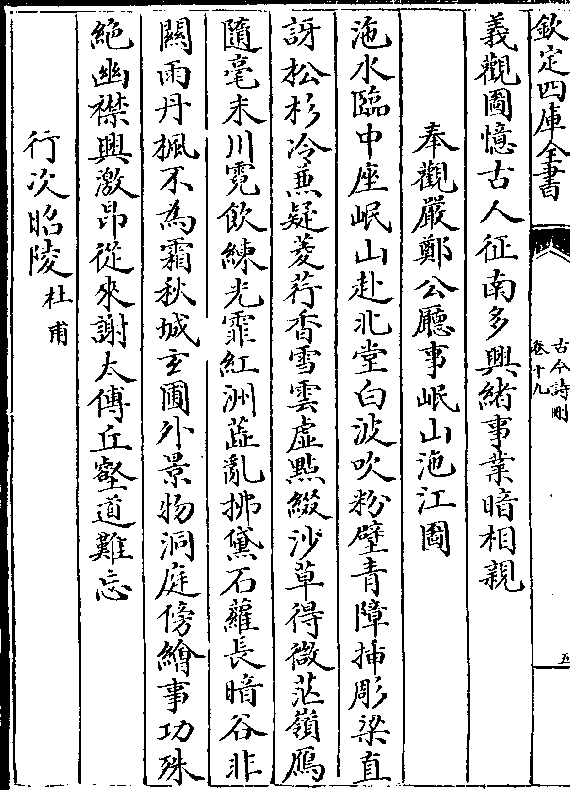 欽定四庫全書
古今詩刪
卷十九
五
義觀圖憶古人征南多興緒事業暗相親
奉觀嚴鄭公廳事岷山沲江圖
沲水臨中座岷山赴北堂白波吹粉壁青障揷彫梁直
訝松杉冷兼疑菱荇香雪雲虛點綴沙草得微茫嶺鴈
隨毫末川霓飲練光霏紅洲蕋亂拂黛石蘿長暗谷非
關雨丹楓不為霜秋城玄圃外景物洞庭傍繪事功殊
絶幽襟興激昂從來謝太傅丘壑道難忘
行次昭陵 杜甫